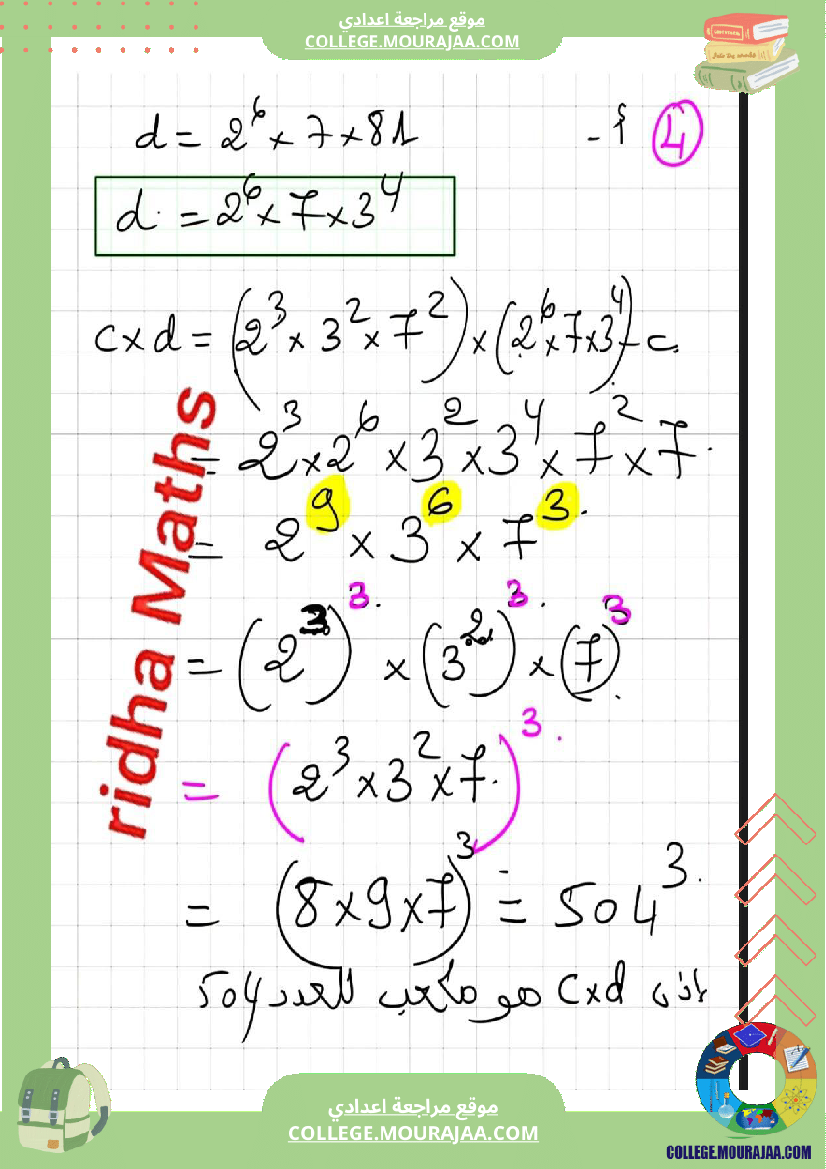 موقع مراجعة اعدادي
COLLEGE.MOURAJAA.COM
4 أ - d = 2⁶ × 7 × 81
d = 2⁶ × 7 × 3⁴
c × d = (2³ × 3² × 7²) × (2⁶ × 7 × 3⁴) - ج
= 2³ × 2⁶ × 3² × 3⁴ × 7² × 7
= 2⁹ × 3⁶ × 7³
= (2³)³ × (3²)³ × (7)³
= (2³ × 3² × 7)³
= (8 × 9 × 7)³ = 504³
إذن c×d هو مكعب للعدد 504
ridha Maths
موقع مراجعة اعدادي
COLLEGE.MOURAJAA.COM
COLLEGE.MOURAJAA.COM